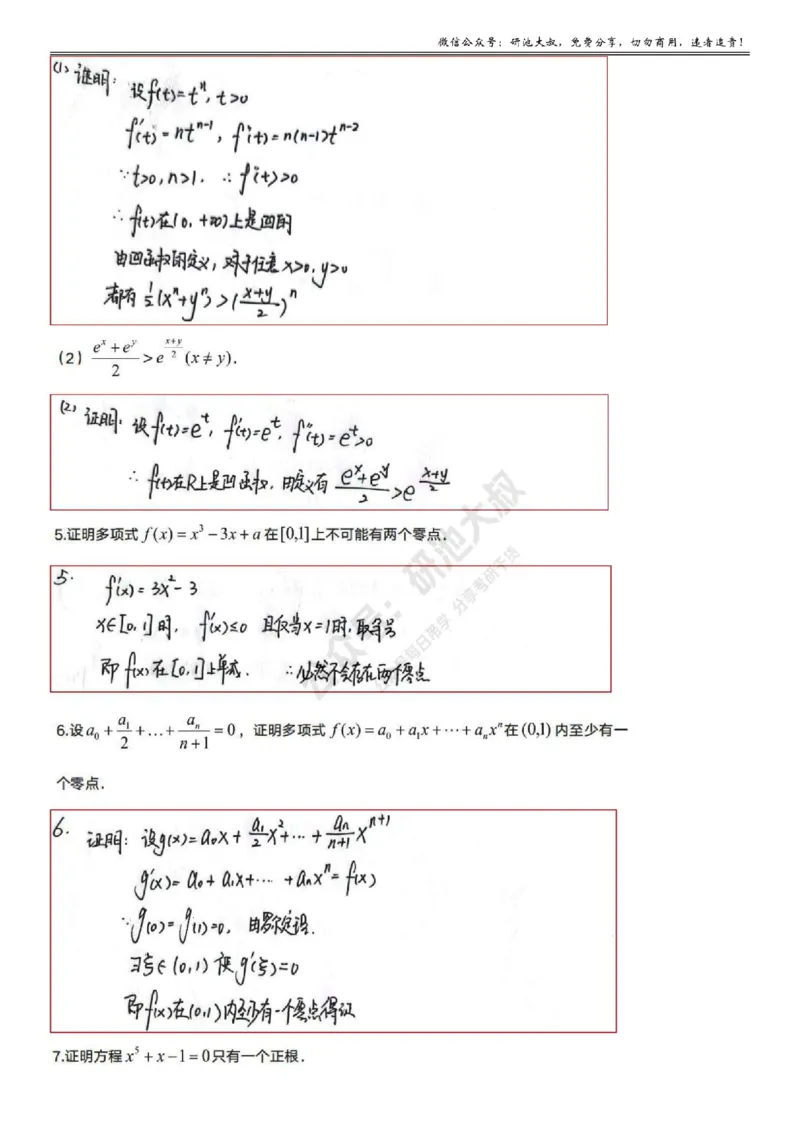 微信公众号：研池大叔，免费分享，切勿商用，违者追责！
(1) 证明：
设f(t)=tⁿ, t>0
f'(t)=ntⁿ⁻¹, f''(t)=n(n-1)tⁿ⁻²
∵t>0, n>1. ∴f''(t)>0
∴f(t)在(0,+∞)上是凹的
由凹函数的定义，对于任意x>0, y>0
都有 1/2(xⁿ+yⁿ)>((x+y)/2)ⁿ
（2）(eˣ+eʸ)/2>e^((x+y)/2) (x≠y).
(2) 证明：设f(t)=eᵗ, f'(t)=eᵗ, f''(t)=eᵗ>0
∴f(t)在R上是凹函数，由定义有 (eˣ+eʸ)/2>e^((x+y)/2)
5.证明多项式 f(x)=x³-3x+a在[0,1]上不可能有两个零点.
5. f'(x)=3x²-3
x∈[0,1]时, f'(x)≤0 且仅当x=1时,取等号
即f(x)在[0,1]上单减. ∴必然不会存在两个零点
6.设a₀+a₁/2+…+aₙ/(n+1)=0，证明多项式 f(x)=a₀+a₁x+⋯+aₙxⁿ在(0,1)内至少有一
个零点.
6. 证明：设g(x)=a₀x+a₁/2x²+⋯+aₙ/(n+1)xⁿ⁺¹
g'(x)=a₀+a₁x+⋯+aₙxⁿ=f(x)
∵g(0)=g(1)=0, 由罗尔定理.
∃ξ∈(0,1)使g'(ξ)=0
即f(x)在(0,1)内至少有一个零点得证
7.证明方程x⁵+x-1=0只有一个正根.